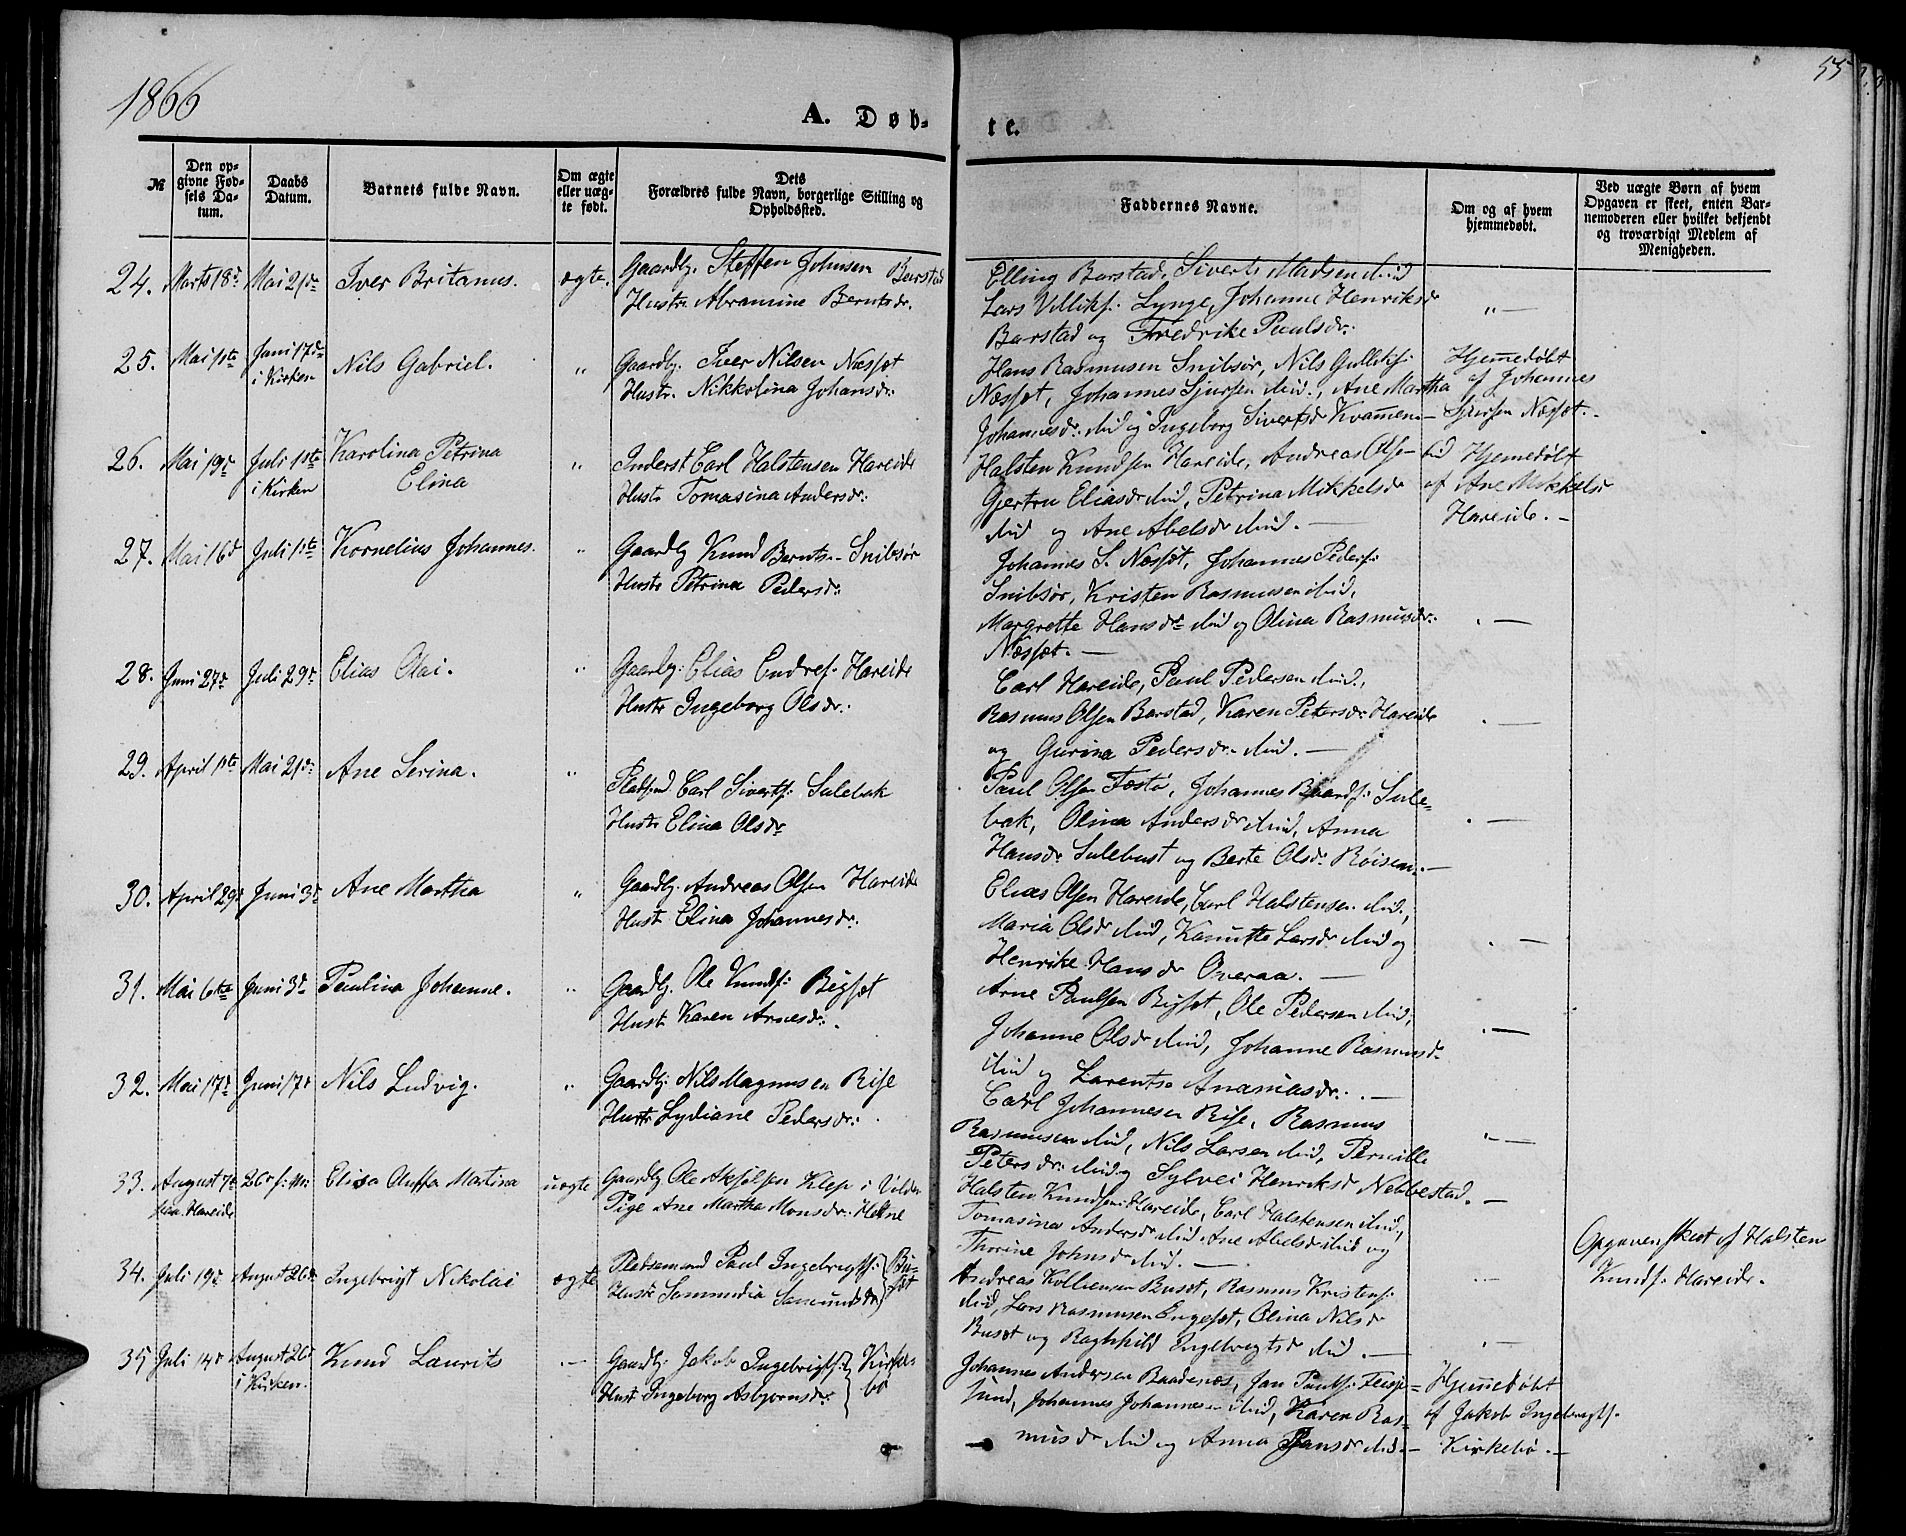 1866
55
A. Døb-
te.
№
Den op-
givne Fød-
sels Da-
tum.
Daabs
Datum.
Barnets fulde Navn.
Om ægte
eller uæg-
te født.
Dets
Forældres fulde Navn, borgerlige Stilling og
Opholdssted.
Faddernes Navne.
Om og af hvem
hjemmedøbt.
Ved uægte Børn af hvem
Opgaven er skeet, enten Bar-
nemoderen eller hvilket bekjendt
og troværdigt Medlem af
Menigheden.
24. Marts 18d Mai 21d Iver Britanus. ægte. Gaardbr. Steffen Johnsen Barstad
Hustr Abramine Berntsdr.
Elling Barstad, Sivert Madsen ibid
Lars Villiksf. Lynge, Johanne Henriksdr
Barstad og Fredrike Paulsdr.
25. Mai 1ste Juni 17de
i Kirken
Nils Gabriel. " Gaardbr. Iver Nilsen Næsset
Hustr. Nikkolina Johansdr.
Hans Rasmusen Snibsør, Nils Gulliksf.
Næsset, Johannes Sjursen ibid., Ane Martha
Johannesdr. ibid og Ingeborg Sivertsdr Kvamen.-
Hjemmedøbt
af Johannes
Sjursen Næsset.-
26. Mai 19d Juli 1ste
i Kirken
Karolina Petrina
Elina
" Inderst Carl Halstensen Hareide
Hustr Tomasina Andersdr.
Halsten Knudsen Hareide, Andreas Olsen ibid
Gjertru Eliasdr ibid, Petrina Mikkelsdr
ibid og Ane Abelsdr ibid. -
Hjemedøbt
af Ane Mikkelsdr
Hareide. -
27. Mai 16d Juli 1ste Kornelius Johannes. " Gaardbr Knud Berntsen Snibsør
Hustr Petrina Pedersdr.
Johannes S. Næsset, Johannes Pedersf.
Snibsør, Kristen Rasmusen ibid,
Margrette Hansdr ibid og Olina Rasmusdr.
Næsset. -
28. Juni 27d Juli 29d Elias Olai. " Gaardbr. Elias Endresf. Hareide
Hustr Ingeborg Olsdr.
Carl Hareide, Paul Pedersen ibid,
Rasmus Olsen Barstad, Karen Petersdr Hareide
og Gurina Pedersdr. ibid. -
29. April 1ste Mai 21d. Ane Serina. " Pladsmd Carl Sivertsf. Sulebak
Hustr Elina Olsdr
Paul Olsen Tæstø, Johannes Baardsf. Sule-
bak, Olina Andersdr ibid, Anna
Hansdr Sulebust og Berte Olsdr. Røisen. -
30. April 29d Juni 3d Ane Martha " Gaardbr. Andreas Olsen Hareide
Hustr Elina Johannesdr.
Elias Olsen Hareide, Carl Halstensen ibid,
Maria Olsdr ibid, Kanutte Larsdr ibid og
Henrike Hansdr Overaa. -
31. Mai 6te Juni 3d Paulina Johanne. " Gaardbr. Ole Knudsf: Bigset
Hustr Karen Arnesdr.
Arne Paulsen Bigset, Ole Pedersen ibid,
Johanne Olsdr ibid, Johanne Rasmusdr
ibid og Larentse Ananiasdr. -
32. Mai 17d Juni 17d Nils Ludvig. " Gaardbr. Nils Magnusen Rise
Hustr Lydiane Pedersdr.
Carl Johannesen Rise, Rasmus
Rasmusen ibid, Nils Larsen ibid, Pernille
Petersdr. ibid og Sylvei Henriksdr Nebbestad. -
33. August 7d
paa Hareide
26d s: M: Elisa Oluffa Martina uægte Gaardbr Ole Akselsen Klep i Vilden
Pige Ane Martha Monsdr.
Halsten Knudsen Hareide, Carl Halstensen ibid,
Tomasina Andersdr ibid, Ane Abelsdr ibid og
Thorine Johnsdr ibid. -
Opgaven skeet af Halsten
Knudsf. Hareide.
34. Juli 19d August 26d Ingebrigt Nikolai ægte Pladsemand Paul Ingebrigtsf:
Hustr Sammedia Samundsdr
Bu-
set
Andreas Kolbensen Buset, Rasmus Kristensf.
ibid, Lars Rasmusen Engeset, Olina Nilsdr
Buset og Raghnild Ingebrigtsdr ibid. -
35 Juli 14d August 26d
i Kirken.
Knud Laurits - Gaardbr. Jakob Ingebrigtsf.
Hustr Ingeborg Asbjørnsdr.
Kirke-
bø
Johannes Andersen Baadenæs, Jan Paulsf.
sund, Johannes Johannesen ibid, Karen Ras-
musdr ibid og Anna Jansdr ibid. -
Hjemedøbt
af Jakob Ingebrigtsf.
Kirkebø. -